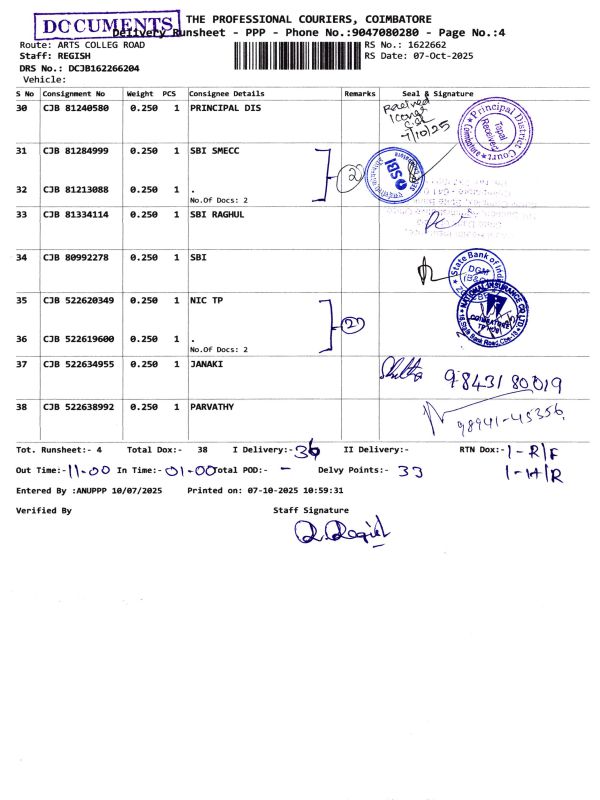 DOCUMENTS
THE PROFESSIONAL COURIERS, COIMBATORE
Delivery Runsheet - PPP - Phone No.:9047080280 - Page No.:4
Route: ARTS COLLEG ROAD
RS No.: 1622662
Staff: REGISH
RS Date: 07-Oct-2025
DRS No.: DCJB162266204
Vehicle:
S No Consignment No Weight PCS Consignee Details Remarks Seal & Signature
30 CJB 81240580 0.250 1 PRINCIPAL DIS
Received
7/10/25
Principal District Court Coimbatore
Tapal Received
31 CJB 81284999 0.250 1 SBI SMECC
2
SBI
32 CJB 81213088 0.250 1 .
No.Of Docs: 2
33 CJB 81334114 0.250 1 SBI RAGHUL
34 CJB 80992278 0.250 1 SBI
State Bank of India
DGM
35 CJB 522620349 0.250 1 NIC TP
2
NATIONAL INSURANCE CO LTD
COIMBATORE
State Bank Road, Cbe-18
36 CJB 522619600 0.250 1 .
No.Of Docs: 2
37 CJB 522634955 0.250 1 JANAKI
98431 80019
38 CJB 522638992 0.250 1 PARVATHY
98941-45356
Tot. Runsheet:- 4 Total Dox:- 38 I Delivery:- 36 II Delivery:- RTN Dox:- 1-R/F
Out Time:- 11-00 In Time:- 01-00 Total POD:- - Delvy Points:- 33 1-H/R
Entered By :ANUPPP 10/07/2025 Printed on: 07-10-2025 10:59:31
Verified By Staff Signature